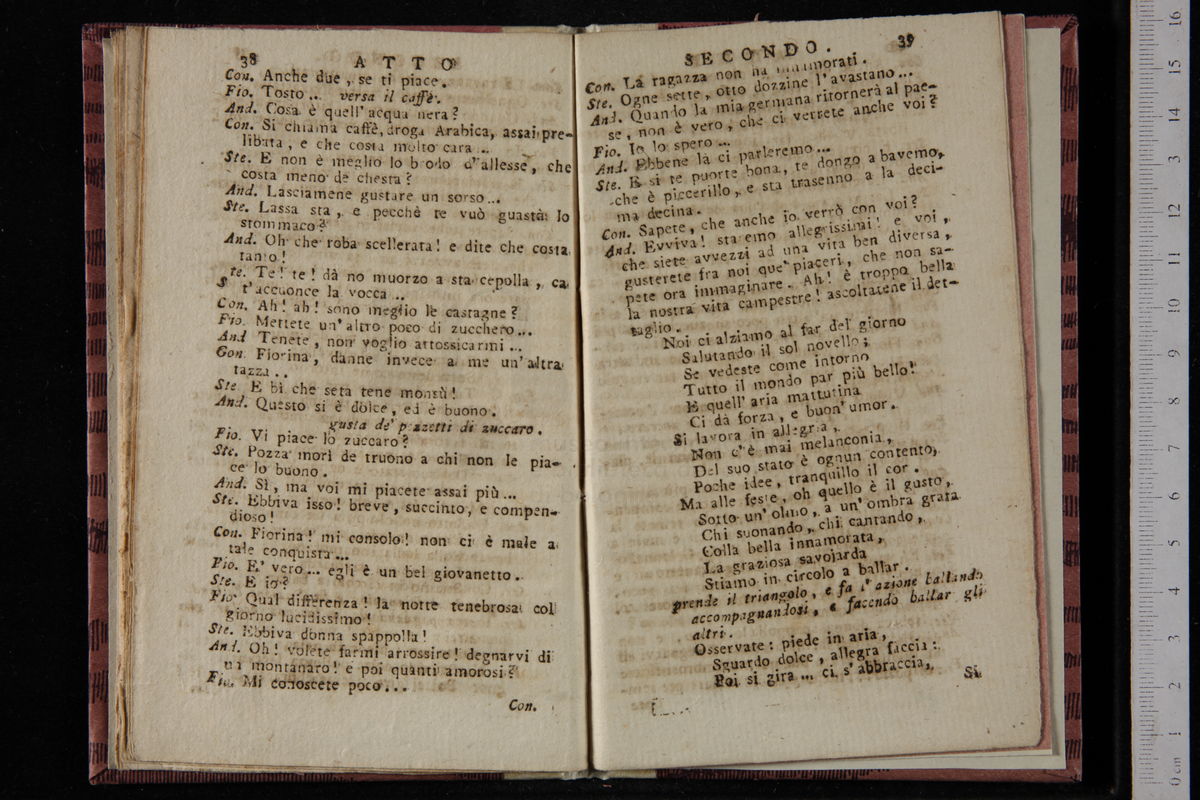 38 ATTO
Con. Anche due, se ti piace.
Fio. Tosto... versa il caffè.
And. Cosa è quell' acqua nera?
Con. Si chiama caffè, droga Arabica, assai pre-
libata, e che costa molto cara...
Ste. E non è meglio lo brodo d'allesse, che
costa meno de chesta?
And. Lasciamene gustare un sorso...
Ste. Lassa sta, e pecchè te vuò guastà lo
stommaco?
And. Oh che roba scellerata! e dite che costa
tanto!
Ste. Te! te! dà no muorzo a sta cepolla, ca
t'accuonce la vocca...
Con. Ah! ah! sono meglio le castagne?
Fio. Mettete un' altro poco di zucchero...
And Tenete, non voglio attossicarmi...
Con. Fiorina, danne invece a me un' altra
tazza..
Ste E bi che seta tene monsù!
And. Questo sì è dolce, ed è buono.
gusta de' pezzetti di zuccaro.
Fio. Vi piace lo zuccaro?
Ste. Pozza morì de truono a chi non le pia-
ce lo buono.
And. Sì, ma voi mi piacete assai più...
Ste. Ebbiva isso! breve, succinto, e compen-
dioso!
Con. Fiorina! mi consolo! non ci è male a
tale conquista...
Fio. E' vero... egli è un bel giovanetto.
Ste. E io?
Fio. Qual differenza! la notte tenebrosa col
giorno lucidissimo!
Ste. Ebbiva donna spappolla!
And. Oh! volete farmi arrossire! degnarvi di
un montanaro! e poi quanti amorosi?
Fio. Mi conoscete poco...
Con.
SECONDO. 39
Con. La ragazza non ha innamorati.
Ste. Ogne sette, otto dozzine l'avastano...
And. Quando la mia germana ritornerà al pae-
se, non è vero, che ci verrete anche voi?
Fio. Io lo spero...
And. Ebbene là ci parleremo...
Ste. E si te puorte bona, te dongo a bavemo,
che è piccerillo, e sta trasenno a la deci-
ma decina.
Con. Sapete, che anche io verrò con voi?
And. Evviva! staremo allegrissimi! e voi,
che siete avvezzi ad una vita ben diversa,
gusterete fra noi que' piaceri, che non sa-
pete ora immaginare. Ah! è troppo bella
la nostra vita campestre! ascoltatene il det-
taglio.
Noi ci alziamo al far del giorno
Salutando il sol novello;
Se vedeste come intorno
Tutto il mondo par più bello!
E quell' aria mattutina
Ci dà forza, e buon' umor.
Si lavora in allegria,
Non c'è mai melanconia,
Del suo stato è ognun contento,
Poche idee, tranquillo il cor.
Ma alle feste, oh quello è il gusto,
Sotto un' olmo, a un' ombra grata
Chi suonando, chi cantando,
Colla bella innamorata,
La graziosa savojarda
Stiamo in circolo a ballar.
prende il triangolo, e fa l'azione ballando
accompagnandosi, e facendo ballar gli
altri.
Osservate: piede in aria,
Sguardo dolce, allegra faccia:
Poi si gira... ci s'abbraccia,
Si